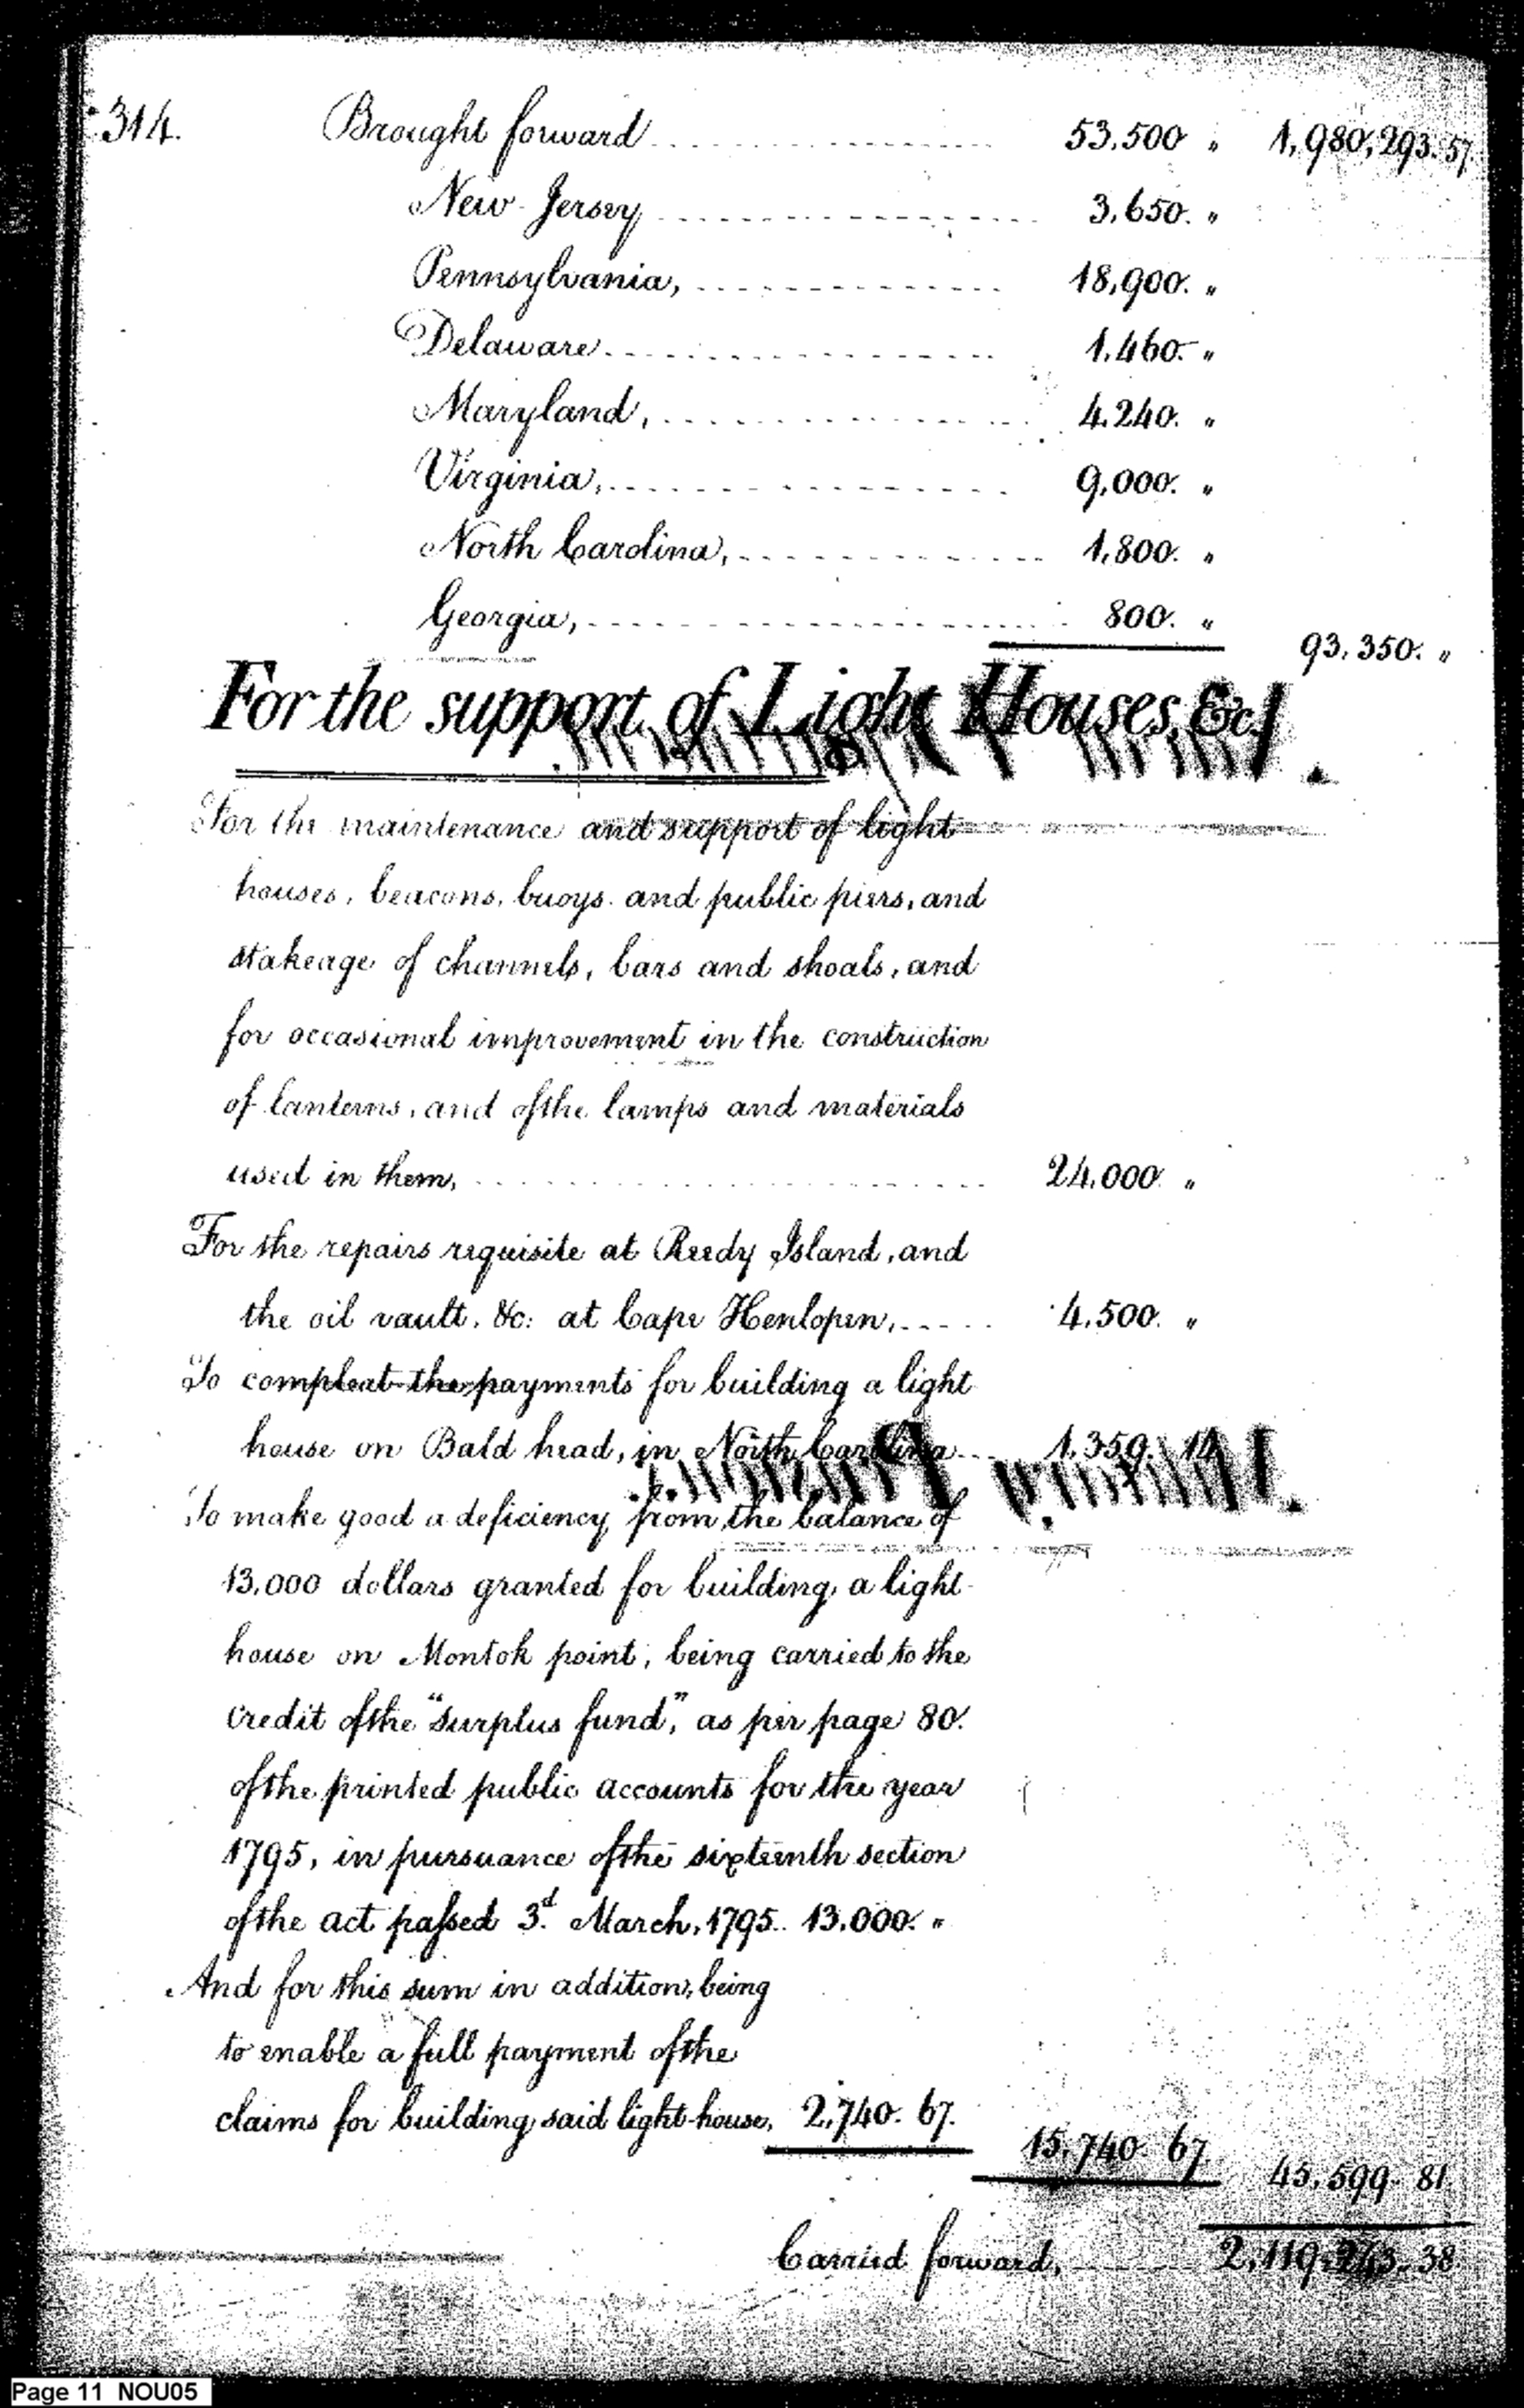 314. Brought forward 53,500. " 1,980,293.57
New-Jersey 3,650. "
Pennsylvania, 18,900. "
Delaware 1,460. "
Maryland, 4,240. "
Virginia, 9,000. "
North Carolina, 1,800. "
Georgia, 800. "
93,350. "
For the support of Light Houses, &c.
For the maintenance and support of light
houses, beacons, buoys. and public piers, and
stakeage of channels, bars and shoals, and
for occasional improvement in the construction
of lanterns, and of the lamps and materials
used in them, 24,000 "
For the repairs requisite at Reedy Island, and
the oil vault, &c: at Cape Henlopen, 4,500. "
To compleat the payments for building a light
house on Bald head, in North Carolina 1,359. 14
To make good a deficiency from the balance of
13,000 dollars granted for building a light-
house on Montok point, being carried to the
credit of the "surplus fund," as per page 80.
of the printed public accounts for the year
1795, in pursuance of the sixteenth section
of the act passed 3.d March, 1795. 13,000. "
And for this sum in addition, being
to enable a full payment of the
claims for building said light-house, 2,740. 67.
15,740 67
45,599. 81
Carried forward, 2,119,243. 38
Page 11 NOU05